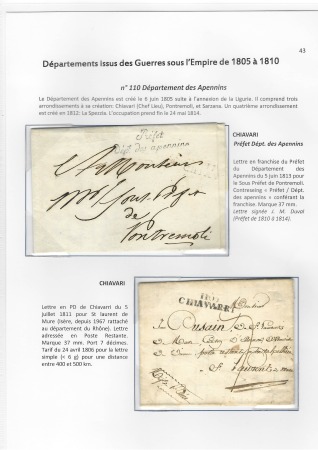 43
Départements issus des Guerres sous l'Empire de 1805 à 1810
n° 110 Département des Apennins
Le Département des Apennins est créé le 6 juin 1805 suite à l'annexion de la Ligurie. Il comprend trois
arrondissements à sa création: Chiavari (Chef Lieu), Pontremoli, et Sarzana. Un quatrième arrondissement
est créé en 1812: La Spezzia. L'occupation prend fin le 24 mai 1814.
CHIAVARI
Préfet Dépt. des Apennins
Lettre en franchise du Préfet
du Département des
Apennins du 5 juin 1813 pour
le Sous Préfet de Pontremoli.
Contreseing « Préfet / Dépt.
des apennins » conférant la
franchise. Marque 37 mm.
Lettre signée J. M. Duval
(Préfet de 1810 à 1814).
Préfet
Dép. des apennins
A Monsieur
Sous Préfet
de
Pontremoli
CHIAVARI
Lettre en PD de Chiavari du 5
juillet 1811 pour St laurent de
Mure (Isère, depuis 1967 rattaché
au département du Rhône). Lettre
adressée en Poste Restante.
Marque 37 mm. Port 7 décimes.
Tarif du 24 avril 1806 pour la lettre
simple (< 6 g) pour une distance
entre 400 et 500 km.
CHIAVARI